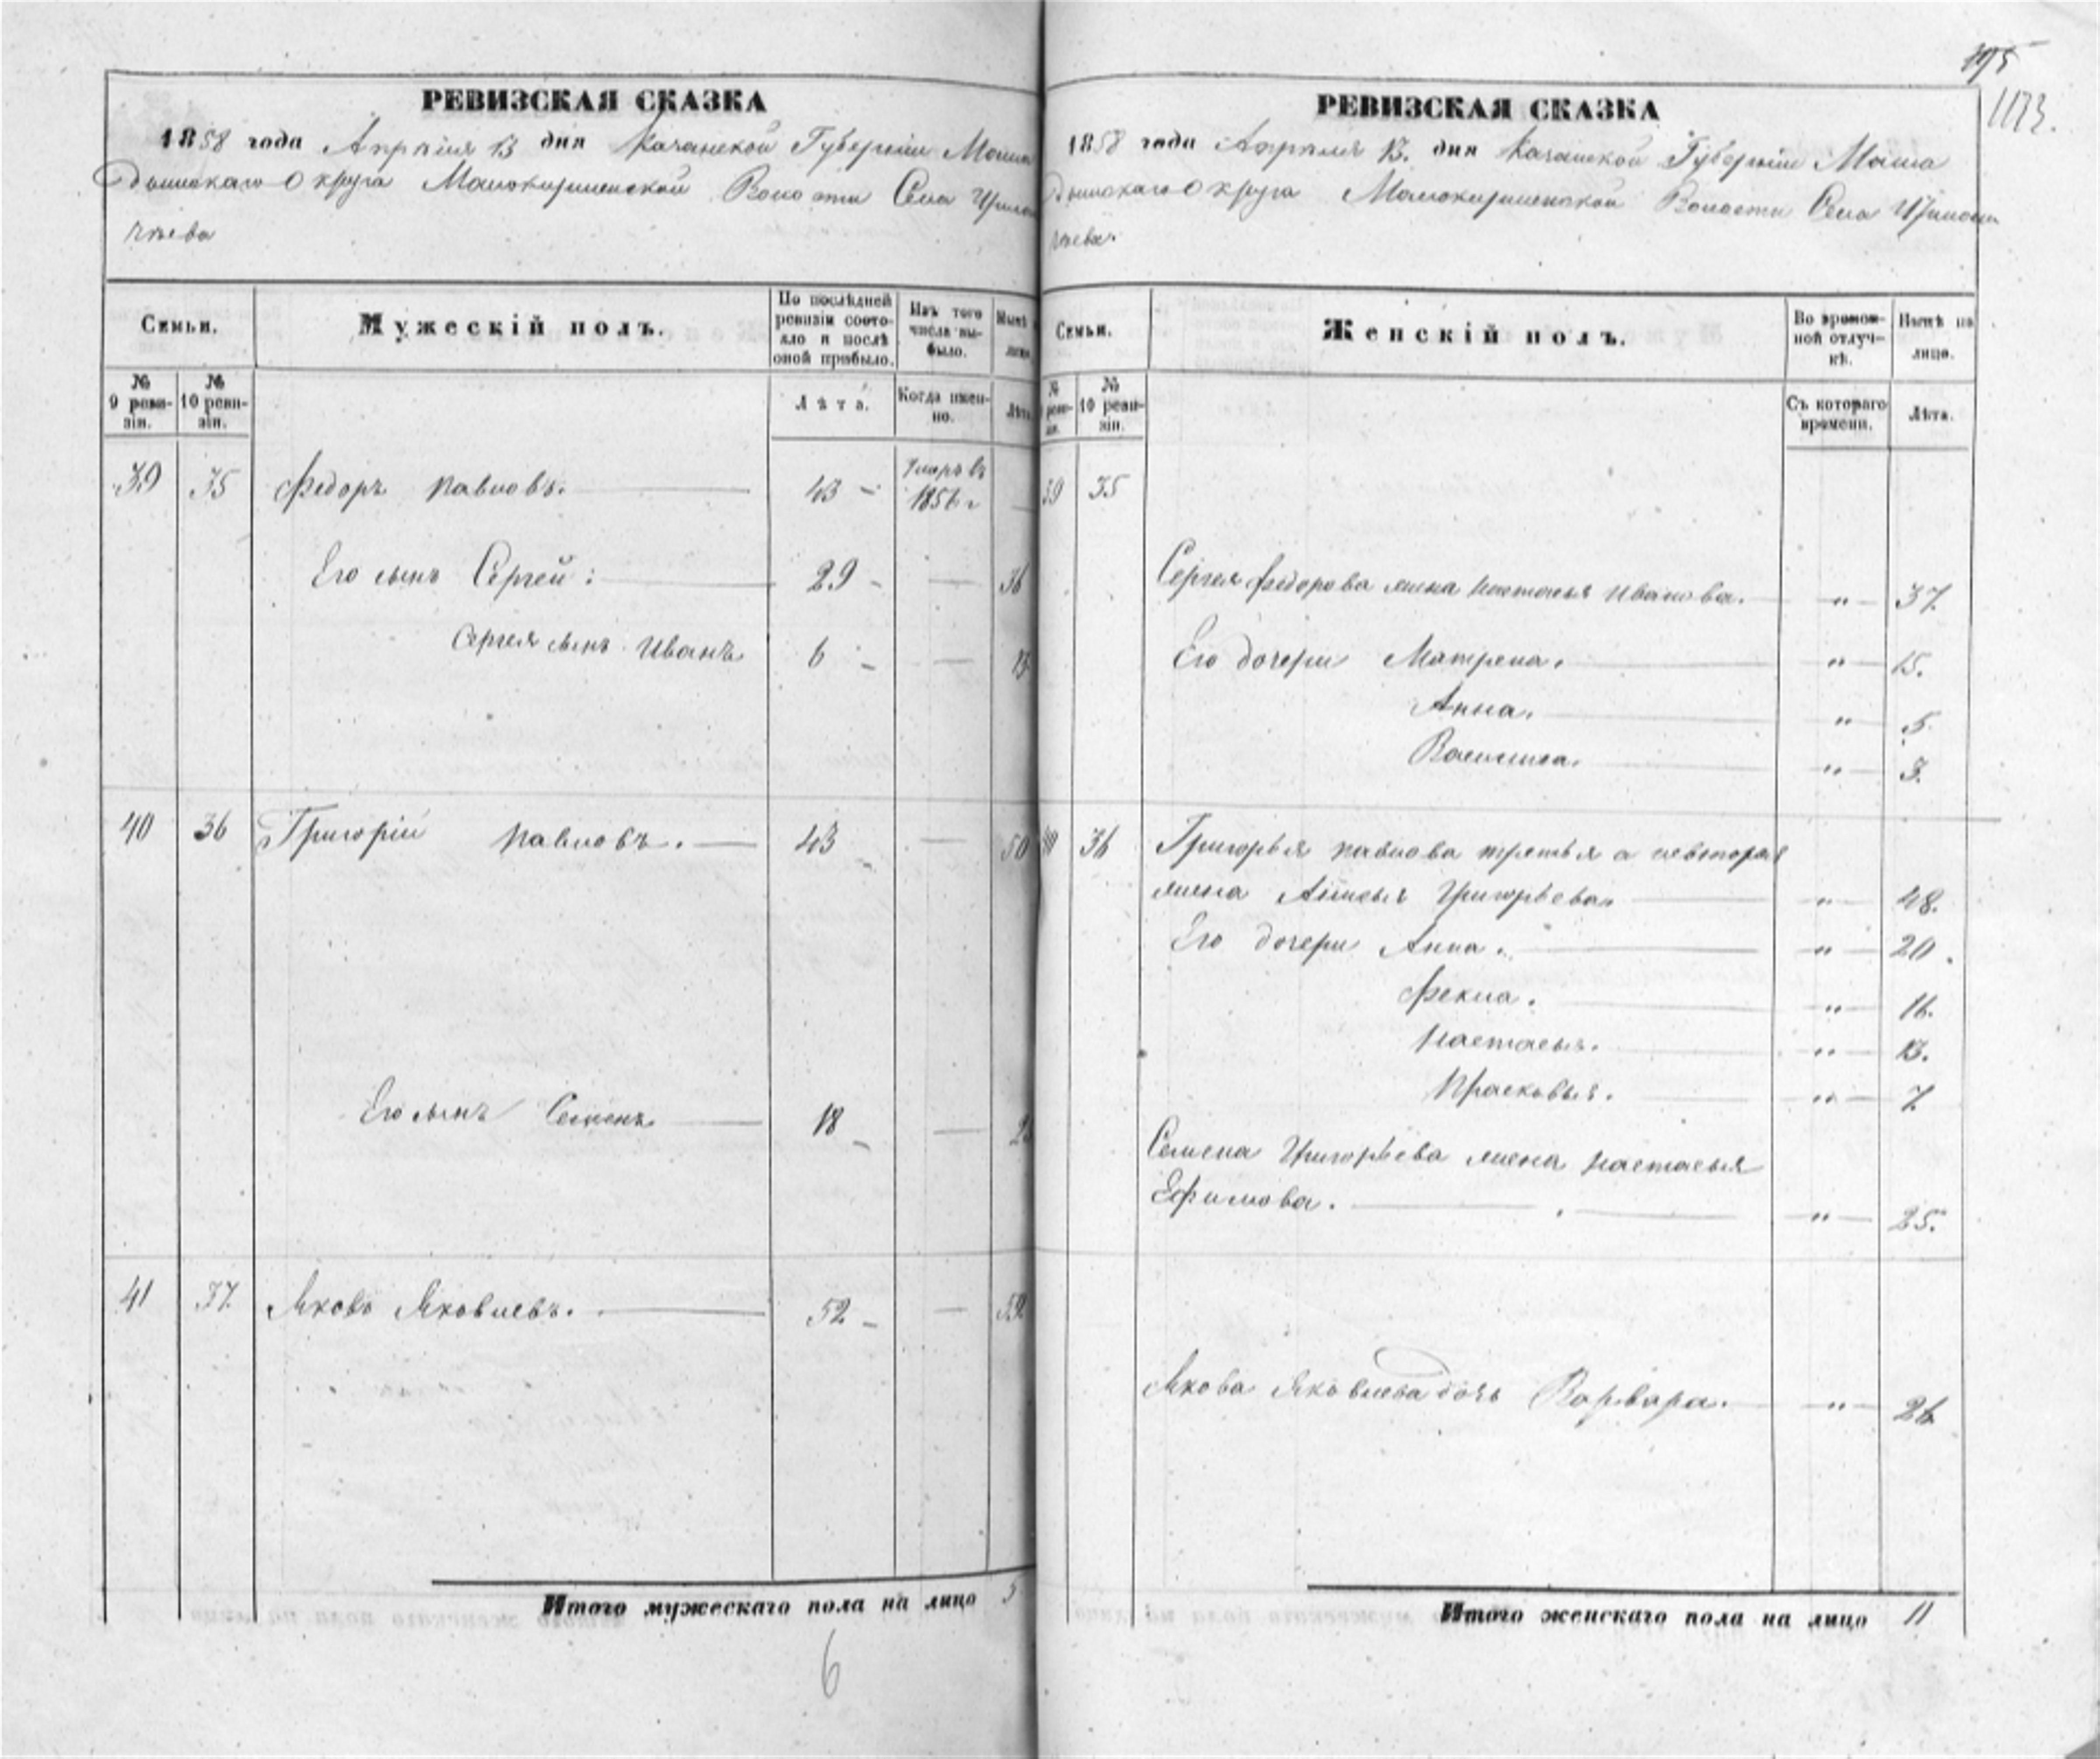 195
1173.
РЕВИЗСКАЯ СКАЗКА
1858 года Апрѣля 13 дня Казанской Губерніи Мама
дышскаго Округа Мамокирменской Волости Села
РЕВИЗСКАЯ СКАЗКА
1858 года Апрѣля 13. дня Казанской Губерніи Мама
дышскаго Округа Мамокирменской Волости Села
Семьи.
Мужескій полъ.
По послѣдней ревизіи состояло и послѣ оной прибыло.
Изъ того числа выбыло.
Нынѣ
№ 9 ревизіи.
№ 10 ревизіи.
Лѣта.
Когда именно.
Лѣта
39 35 Федоръ Павловъ. 43 Умеръ въ 1856 г
Его сынъ Сергей: 29 36
Сергея сынъ Иванъ 6 13
40 36 Григорій Павловъ. 43 50
Его сынъ Семенъ 18
41 37. Яковъ Яковлевъ. 52 59
Итого мужескаго пола на лицо 5
6
Семьи.
Женскій полъ.
Во временной отлучкѣ.
Нынѣ на лице.
№
№ 10 ревизіи.
Съ котораго времени.
Лѣта.
39 35
Сергея Федорова жена Настасья Иванова. " 37.
Его дочери Матрена. " 15.
Анна. " 5.
Василиса. " 3.
40 36 Григорья Павлова третья а невторая
жена Григорьева. " 48.
Его дочери Анна. " 20.
Фекла. " 16.
Настасья. " 13.
Прасковья. " 7.
Семена Григорьева жена Настасья
Ефимова. " 25.
Якова Яковлева дочь Варвара. " 26
Итого женскаго пола на лицо 11